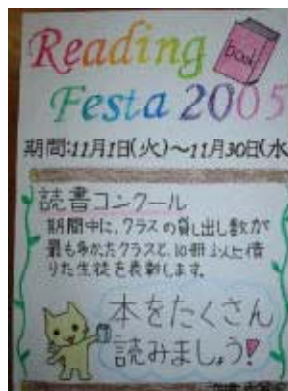 Reading
book
Festa 2005
期間:11月1日(火)〜11月30日(水
読書コンクール
期間中に、クラスの貸し出し数が
最も多かったクラスと、10冊以上借
りた生徒を表彰します。
本をたくさん
読みましょう!